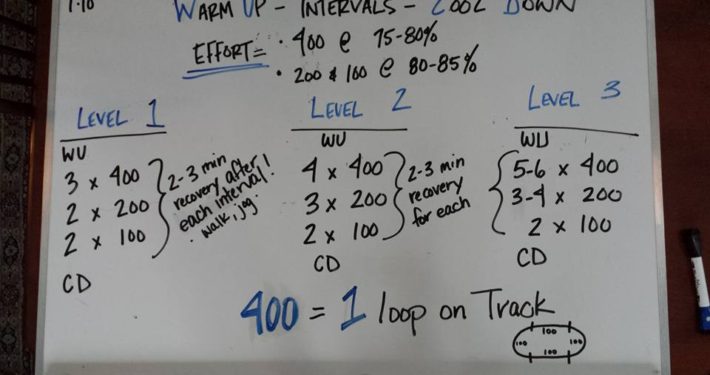 1:10
WARM UP - INTERVALS - COOL DOWN
EFFORT = • 400 @ 75-80%
• 200 & 100 @ 80-85%
LEVEL 1
WU
3 x 400
2 x 200
2 x 100
2-3 min
recovery after
each interval!
• walk, jog
CD
LEVEL 2
WU
4 x 400
3 x 200
2 x 100
2-3 min
recovery
for each
CD
LEVEL 3
WU
5-6 x 400
3-4 x 200
2 x 100
CD
400 = 1 loop on Track
100
100 100
100